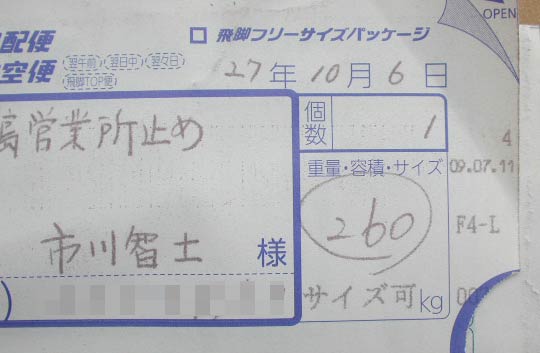 配便
□ 飛脚フリーサイズパッケージ
OPEN
空便
翌午前 翌日中 翌々日
飛脚TOP便
27年10月6日
営業所止め
個数
1
4
重量・容積・サイズ
09.07.11
260
F4-L
市川智士 様
サイズ可 kg